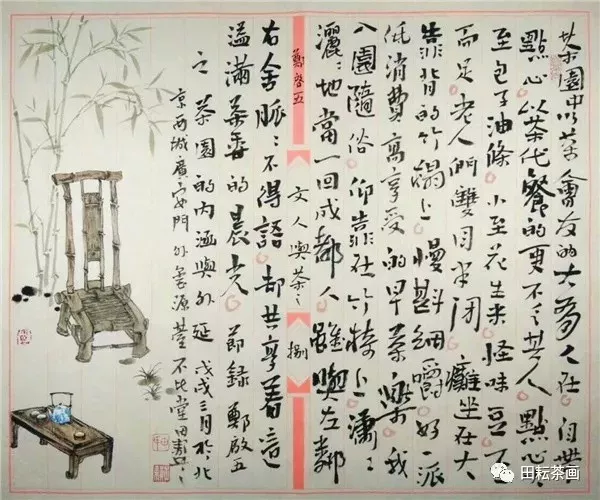 茶園中以茶會友的大有人在自帶
點心以茶代餐的更不乏其人點心大
至包子油條小至花生米怪味豆不一
而足老人們雙目半閉癱坐在大
靠背的竹椅上慢斟細嚼好一派
低消費高享受的早茶樂我
入園隨俗仰靠在竹椅上瀟〻
灑〻地當一回成都人雖與左鄰
鄭啓五
文人與茶之
捌
右舍脈〻不得語却共享着這
溢滿茶香的晨光節録鄭啟五
之茶園的内涵與外延戊戌三月於北
京西城廣安門外源不比堂田
田耘茶画